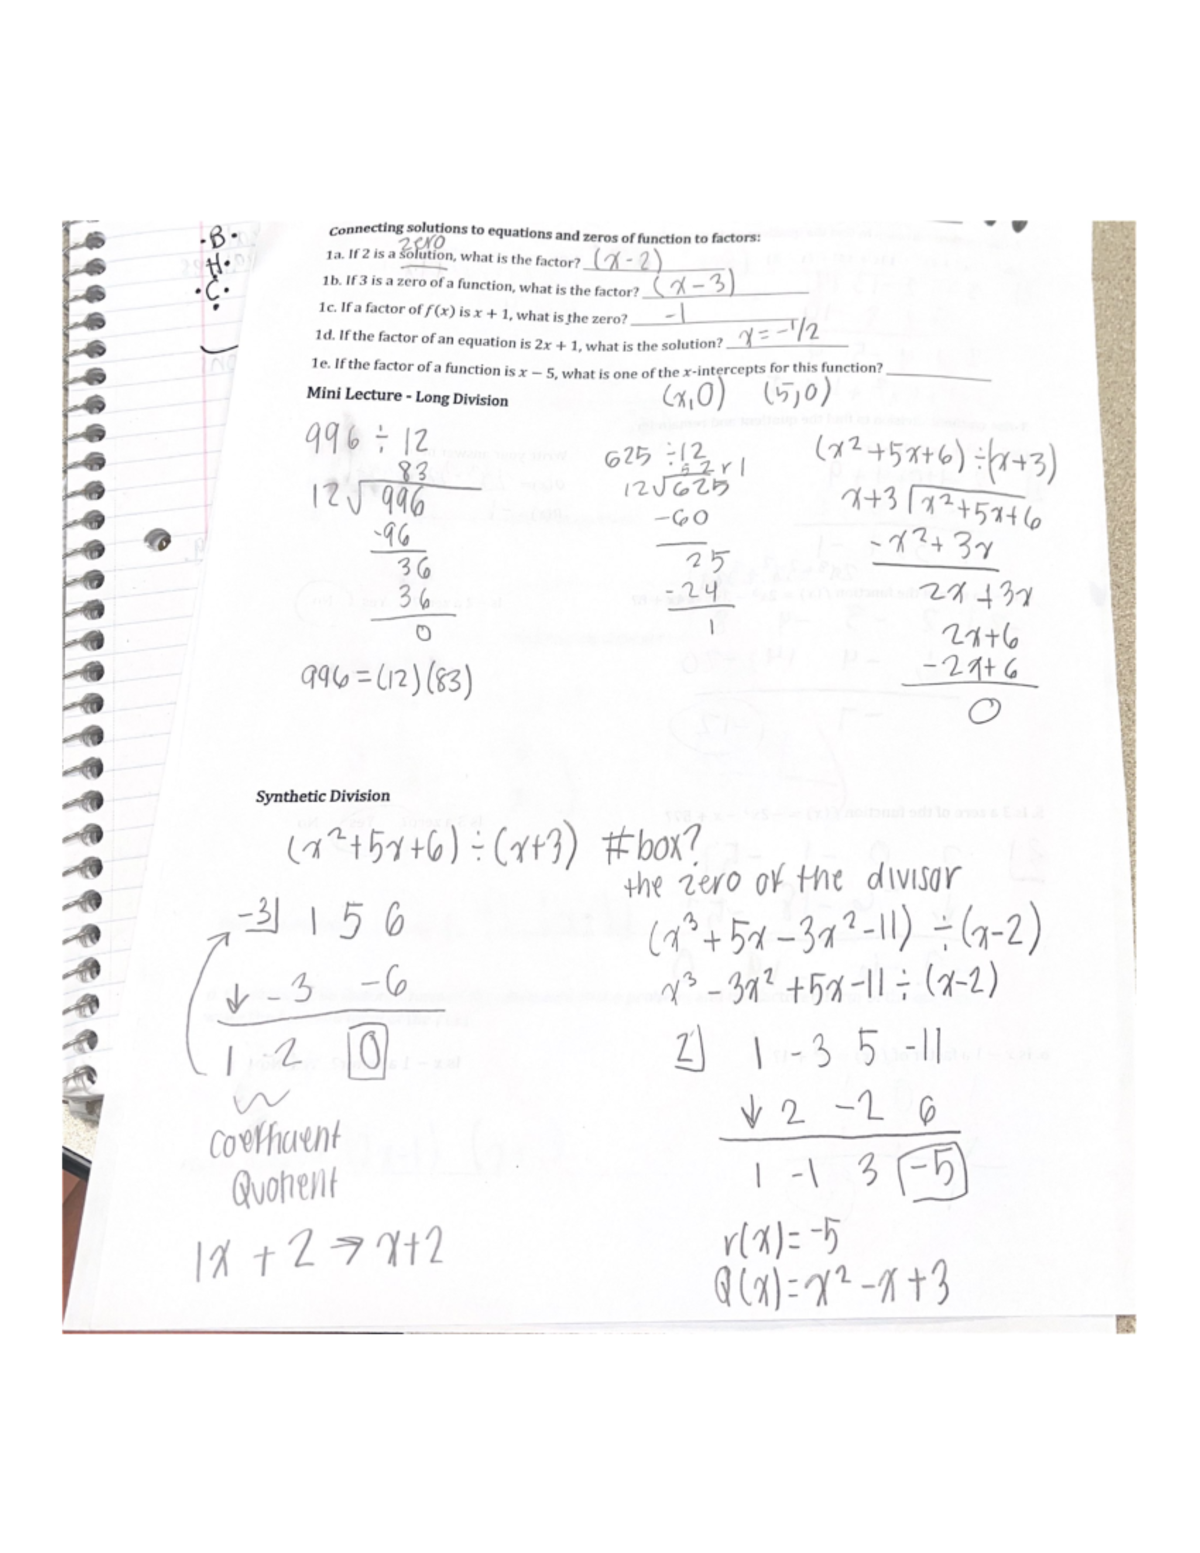 ·B·
H·
·C·
Connecting solutions to equations and zeros of function to factors:
zero
1a. If 2 is a solution, what is the factor? (x-2)
1b. If 3 is a zero of a function, what is the factor? (x-3)
1c. If a factor of f(x) is x + 1, what is the zero? -1
1d. If the factor of an equation is 2x + 1, what is the solution? x=-1/2
1e. If the factor of a function is x − 5, what is one of the x-intercepts for this function?
(x,0) (5,0)
Mini Lecture - Long Division
996 ÷ 12
83
12√996
-96
36
36
0
996=(12)(83)
625 ÷12
52 r 1
12√625
-60
25
-24
1
(x²+5x+6)÷(x+3)
x+3√x²+5x+6
-x²+3x
2x+3x
2x+6
-2x+6
0
Synthetic Division
(x²+5x+6)÷(x+3) #box?
the zero of the divisor
-3| 1 5 6
↓ -3 -6
1 2 0
Coefficient
Quotient
1x + 2 → x+2
(x³+5x-3x²-11) ÷(x-2)
x³-3x²+5x-11÷(x-2)
2| 1 -3 5 -11
↓ 2 -2 6
1 -1 3 -5
r(x)=-5
Q(x)=x²-x+3